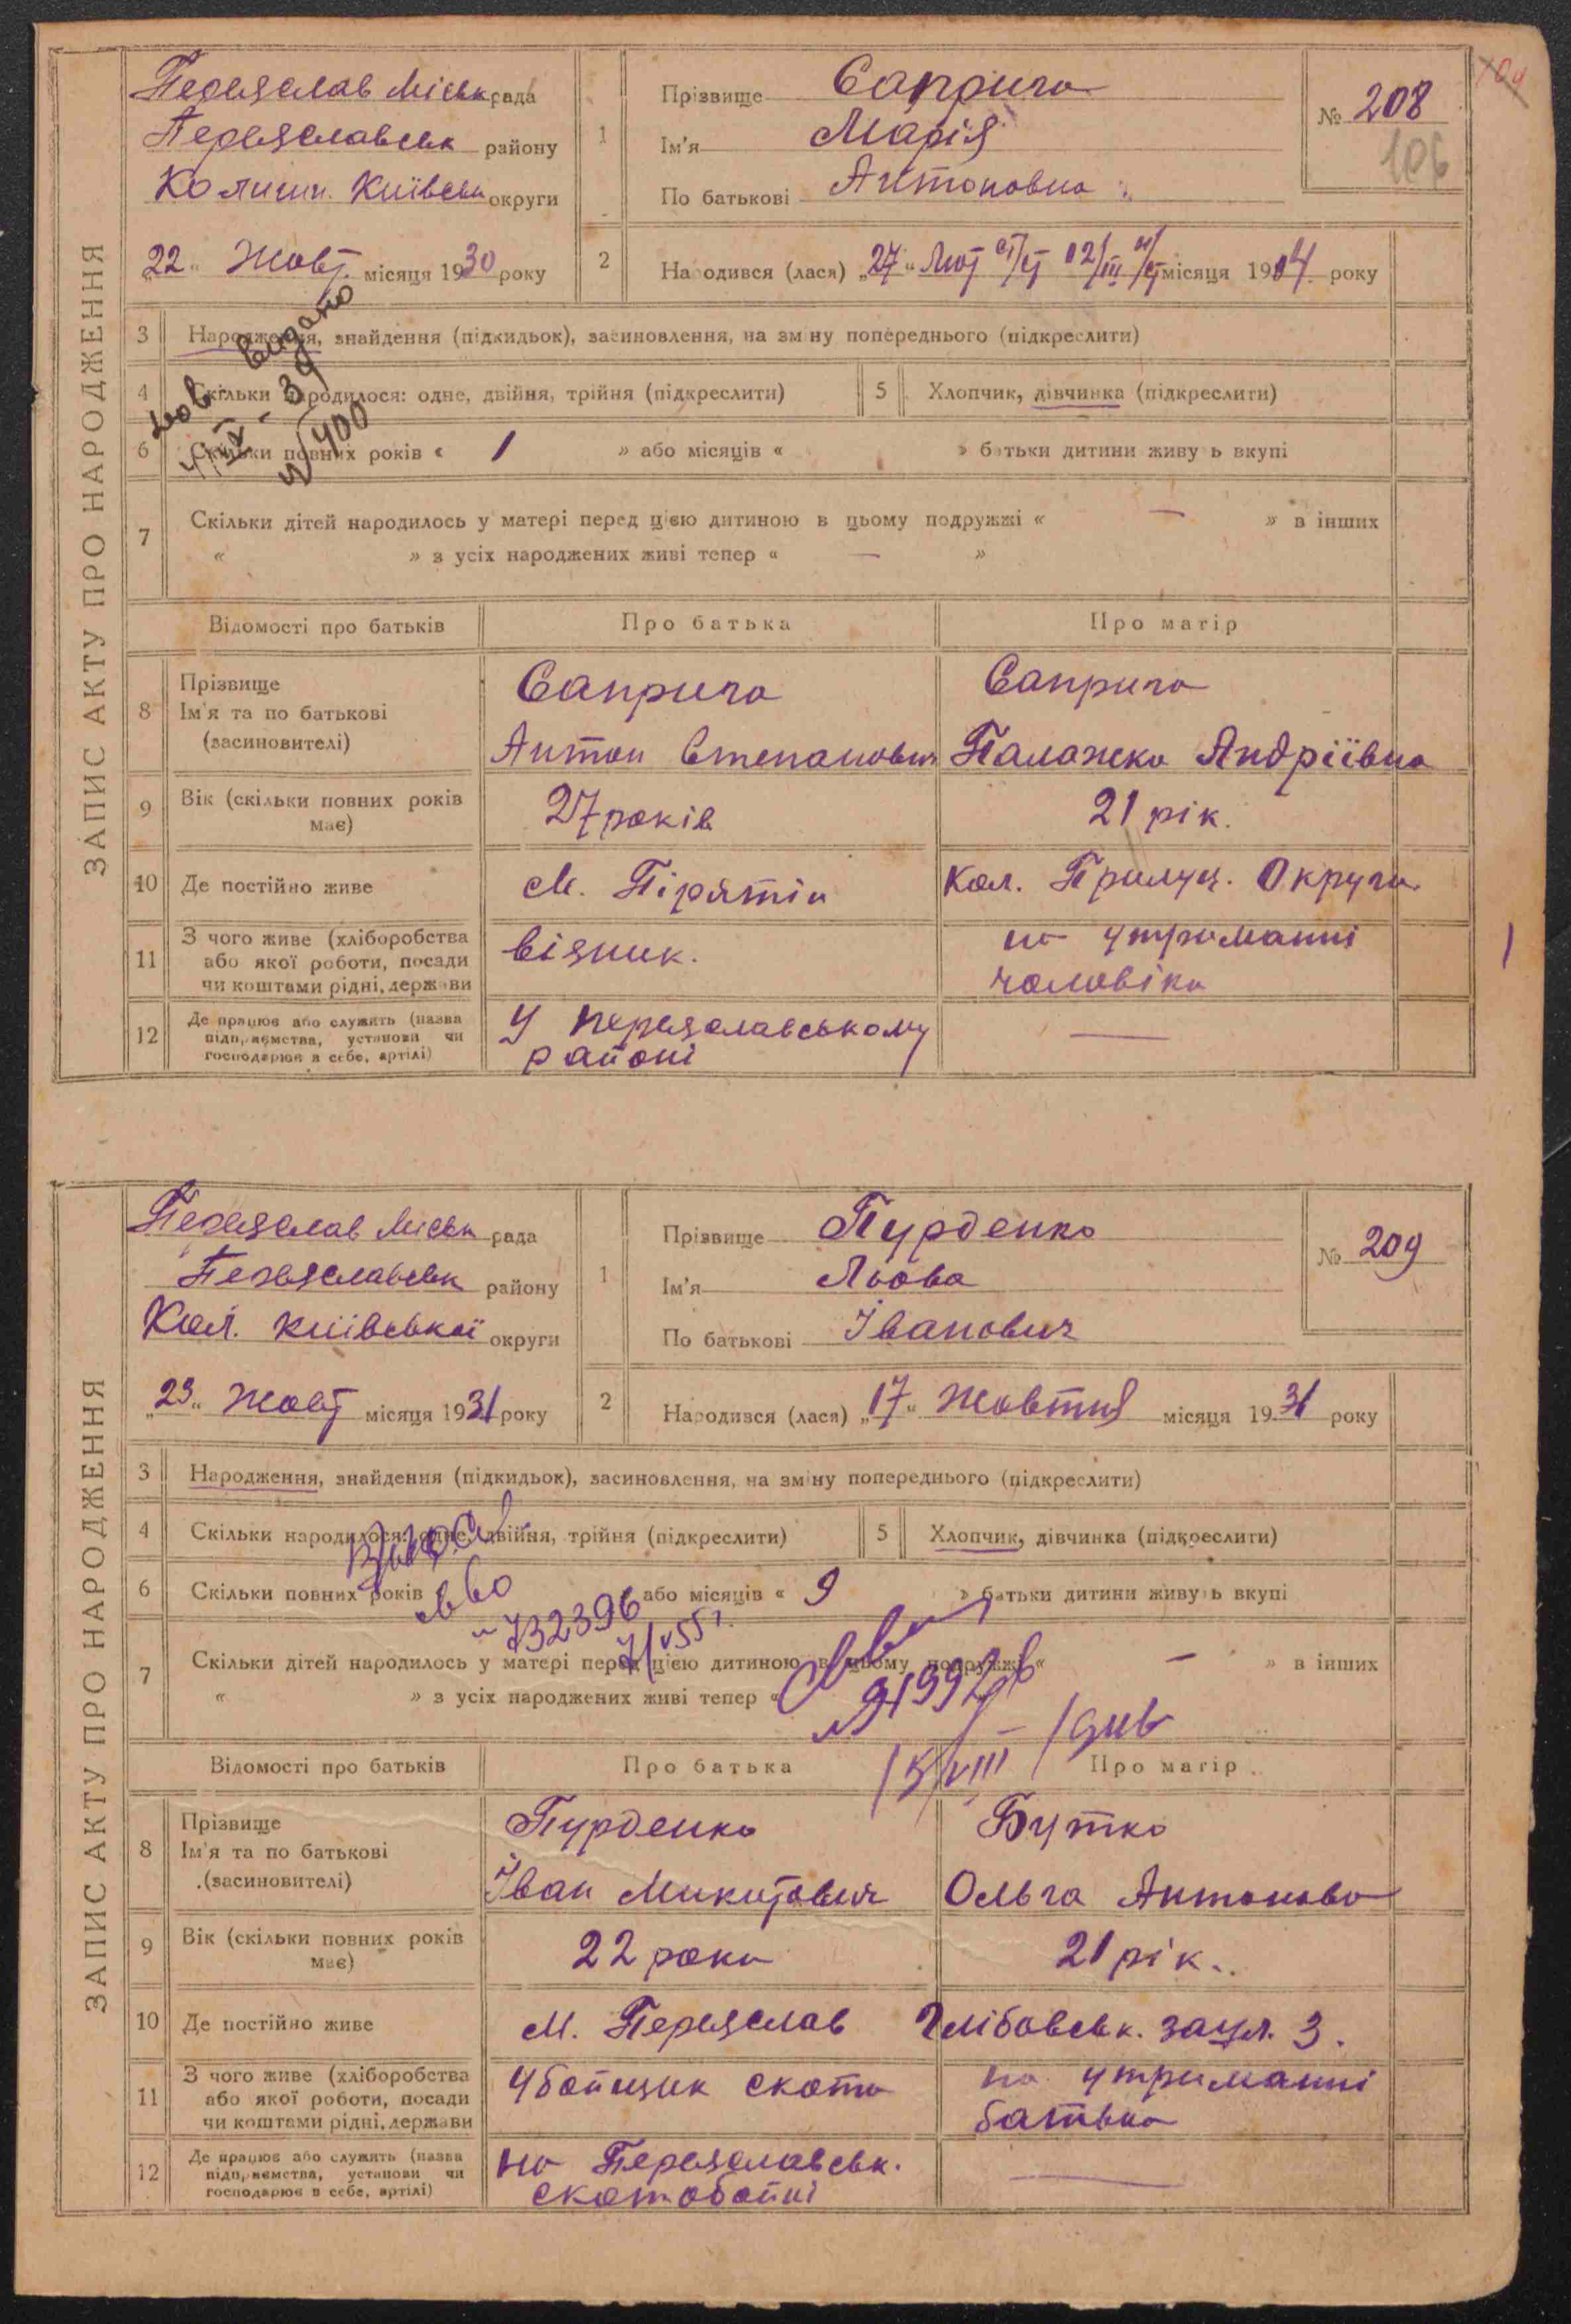 ЗАПИС АКТУ ПРО НАРОДЖЕННЯ
Переяслав Міськ рада
Переяславськ району
Колишн. Київськ округи
„22“ Жовт. місяця 1930 року
1 Прізвище Саприга
Ім'я Марія
По батькові Антоновна
№ 208
106
2 Народився (лася) „27“ Лют ст/ст 12/III н/ст місяця 1904 року
3 Народження, знайдення (підкидьок), засиновлення, на зміну попереднього (підкреслити)
видано
4 Скільки народилося: одне, двійня, трійня (підкреслити)
5 Хлопчик, дівчинка (підкреслити)
№ 400
6 Скільки повних років « 1 » або місяців « » батьки дитини живуть вкупі
7 Скільки дітей народилось у матері перед цією дитиною в цьому подружжі « — » в інших
« » з усіх народжених живі тепер « — »
Відомості про батьків Про батька Про матір
8 Прізвище Саприга Саприга
Ім'я та по батькові
(засиновителі) Антон Степанович Палажка Андріївна
9 Вік (скільки повних років має) 27 років 21 рік.
10 Де постійно живе м. Пірятін Кол. Прилуц. Округи
11 З чого живе (хліборобства
або якої роботи, посади
чи коштами рідні, держави візник. на утриманні
чоловіка
12 Де працює або служить (назва
підприємства, установи чи
господарює в себе, артілі) у переяславському
районі —
ЗАПИС АКТУ ПРО НАРОДЖЕННЯ
Переяслав Міськ рада
Переяславськ району
Кол. Київської округи
„23“ Жовт місяця 1931 року
1 Прізвище Пурденко
Ім'я Льова
По батькові Іванович
№ 209
2 Народився (лася) „17“ Жовтня місяця 1931 року
3 Народження, знайдення (підкидьок), засиновлення, на зміну попереднього (підкреслити)
4 Скільки народилося: одне, двійня, трійня (підкреслити)
5 Хлопчик, дівчинка (підкреслити)
6 Скільки повних років або місяців « 9 » батьки дитини живуть вкупі
732396
7/V 55 г.
7 Скільки дітей народилось у матері перед цією дитиною в цьому подружжі « — » в інших
« » з усіх народжених живі тепер «
Відомості про батьків Про батька Про матір
8 Прізвище Пурденко Бутко
Ім'я та по батькові
(засиновителі) Іван Микитович Ольга Антонова
9 Вік (скільки повних років має) 22 роки 21 рік.
10 Де постійно живе м. Переяслав Глібовськ. заул. 3.
11 З чого живе (хліборобства
або якої роботи, посади
чи коштами рідні, держави убойщик скота на утриманні
батька
12 Де працює або служить (назва
підприємства, установи чи
господарює в себе, артілі) на Переяславськ.
скотобойні —